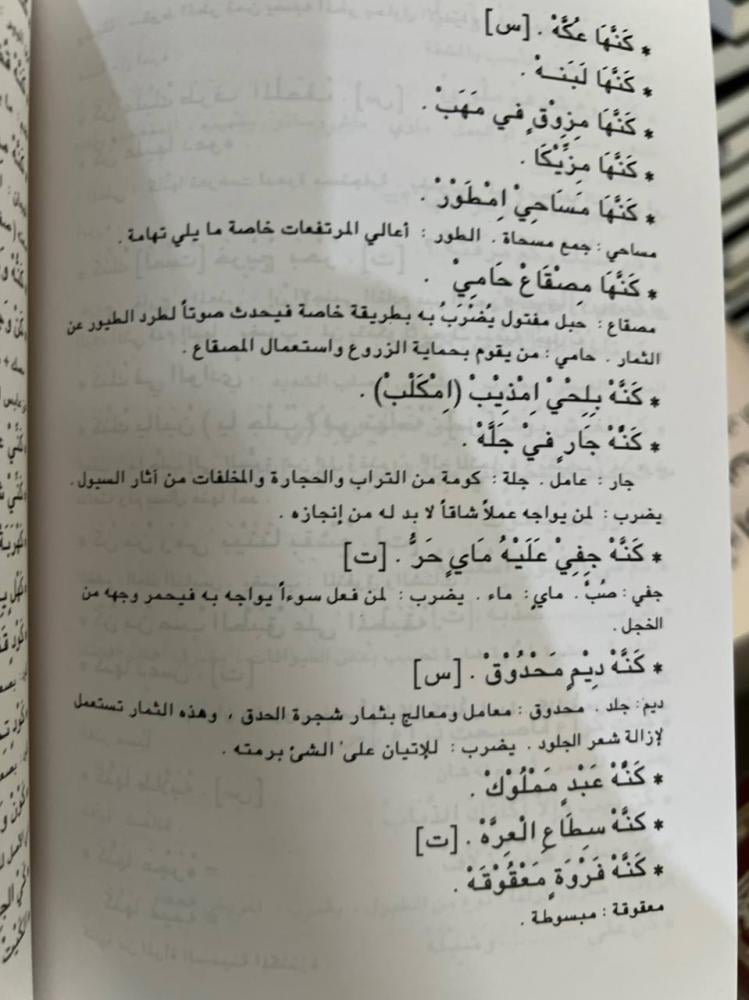 * كَنَّهَا عكَّهْ . [س]
* كَنَّهَا لَبَنَـهْ .
* كَنَّهَا مِزِوْقٍ في مَهَبْ .
* كَنَّهَا مِزِّيْكَا .
* كَنَّهَا مَسَاحِيْ اِمْطَوْرْ .
مساحي : جمع مسحاة . الطور : أعالي المرتفعات خاصة ما يلي تهامة .
* كَنَّهَا مِصْقَاعْ حَامِيْ .
مصقاع : حبل مفتول يُضْرَبُ به بطريقة خاصة فيحدث صوتاً لطرد الطيور عن
الثمار . حامي : من يقوم بحماية الزروع واستعمال المصقاع .
* كَنَّهْ بِلِحْيْ اِمْذِيْبْ (اِمْكَلْبْ) .
* كَنَّهْ جَارٍ فيْ جَلَّهْ .
جار : عامل . جلة : كومة من التراب والحجارة والمخلفات من آثار السيول .
يضرب : لمن يواجه عملاً شاقاً لا بد له من إنجازه .
* كَنَّهْ جِفِيْ عَلَيْهْ مَايٍ حَرُّ . [ت]
جفي : صُبْ . مايٍ : ماء . يضرب : لمن فعل سوءاً يواجه به فيحمر وجهه من
الخجل .
* كَنَّهْ دِيْمٍ مَحْدُوْقْ . [س]
ديم : جلد . محدوق : معامل ومعالج بثمار شجرة الحدق ، وهذه الثمار تستعمل
لإزالة شعر الجلود . يضرب : للإتيان على الشئ برمته .
* كَنَّهْ عَبْدٍ مَمْلُوْكْ .
* كَنَّهْ سِطَاعِ الْعِرَّهْ . [ت]
* كَنَّهْ فَرْوَةٍ مَعْقُوْقَهْ .
معقوقة : مبسوطة .